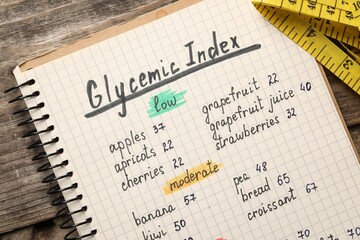 Glycemic Index
low
apples 37
apricots 22
cherries 22
grapefruit 22
grapefruit juice 40
strawberries 32
moderate
banana 57
kiwi 50
pea 48
bread 65
croissant 67